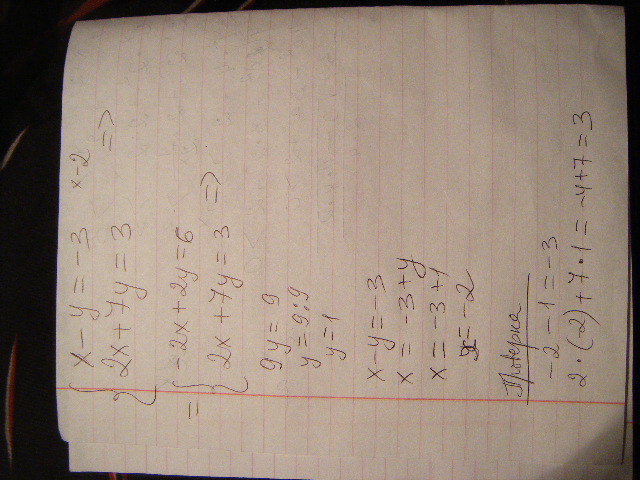 x - y = -3 x-2
2x + 7y = 3 =>
= -2x + 2y = 6
2x + 7y = 3 =>
9y = 9
y = 9:9
y = 1
x - y = -3
x = -3 + y
x = -3 + 1
x = -2
Проверка
-2 - 1 = -3
2·(-2) + 7·1 = -4+7 = 3